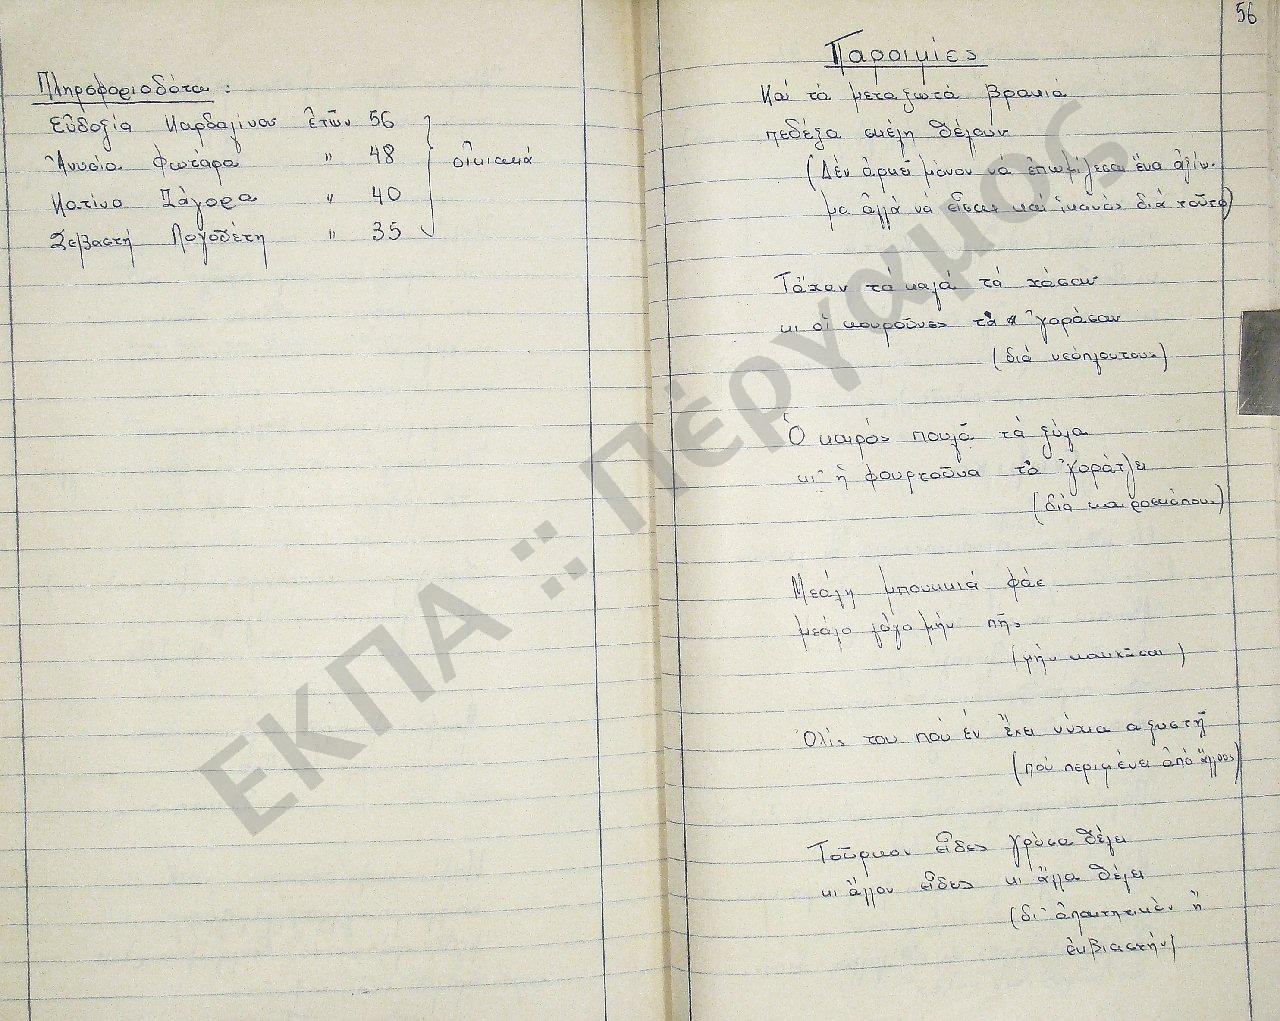 Πληροφοριοδόται :
Εὐδοξία Καρδαλίνου ἐτῶν 56
Ἀνυσία Φωτάρα " 48
οἰκιακά
Κατίνα Ζάγορα " 40
Σεβαστή Λογοθέτη " 35
56
Παροιμίες
Καί τά μεταξωτά βρακιά
πεδέξα σκέλη θέλουν
(Δέν ἀρκεῖ μόνον νά ἐπωμίζεσαι ἕνα ἀξίω-
μα ἀλλά να εἶσαι καί ἱκανός διά τοῦτο)
Τἄχαν τά καλά τά χάσαν
κι οἱ κουροῦνες τά ἀγοράσαν
(διά νεόπλουτους)
Ὁ καιρός πουλᾶ τά ξύλα
κι' ἡ φουρτοῦνα τά ἀγοράζει
(διά καιροσκόπους)
Μεάλη μπουκκιά φάε
μεάλο λόγο μήν πῆς
(μήν καυκᾶσαι)
Ὀλίς του πού ἐν ἔχει νύχια α ξυστῆ
(πού περιμένει ἀπό ἄλλους)
Τοῦρκον εἶδες γρόσα θέλει
κι ἄλλον εἶδες κι ἄλλα θέλει
(δι' ἀπαιτητικόν ἤ
ἐκβιαστήν)
ΕΚΠΑ :: Πέργαμος